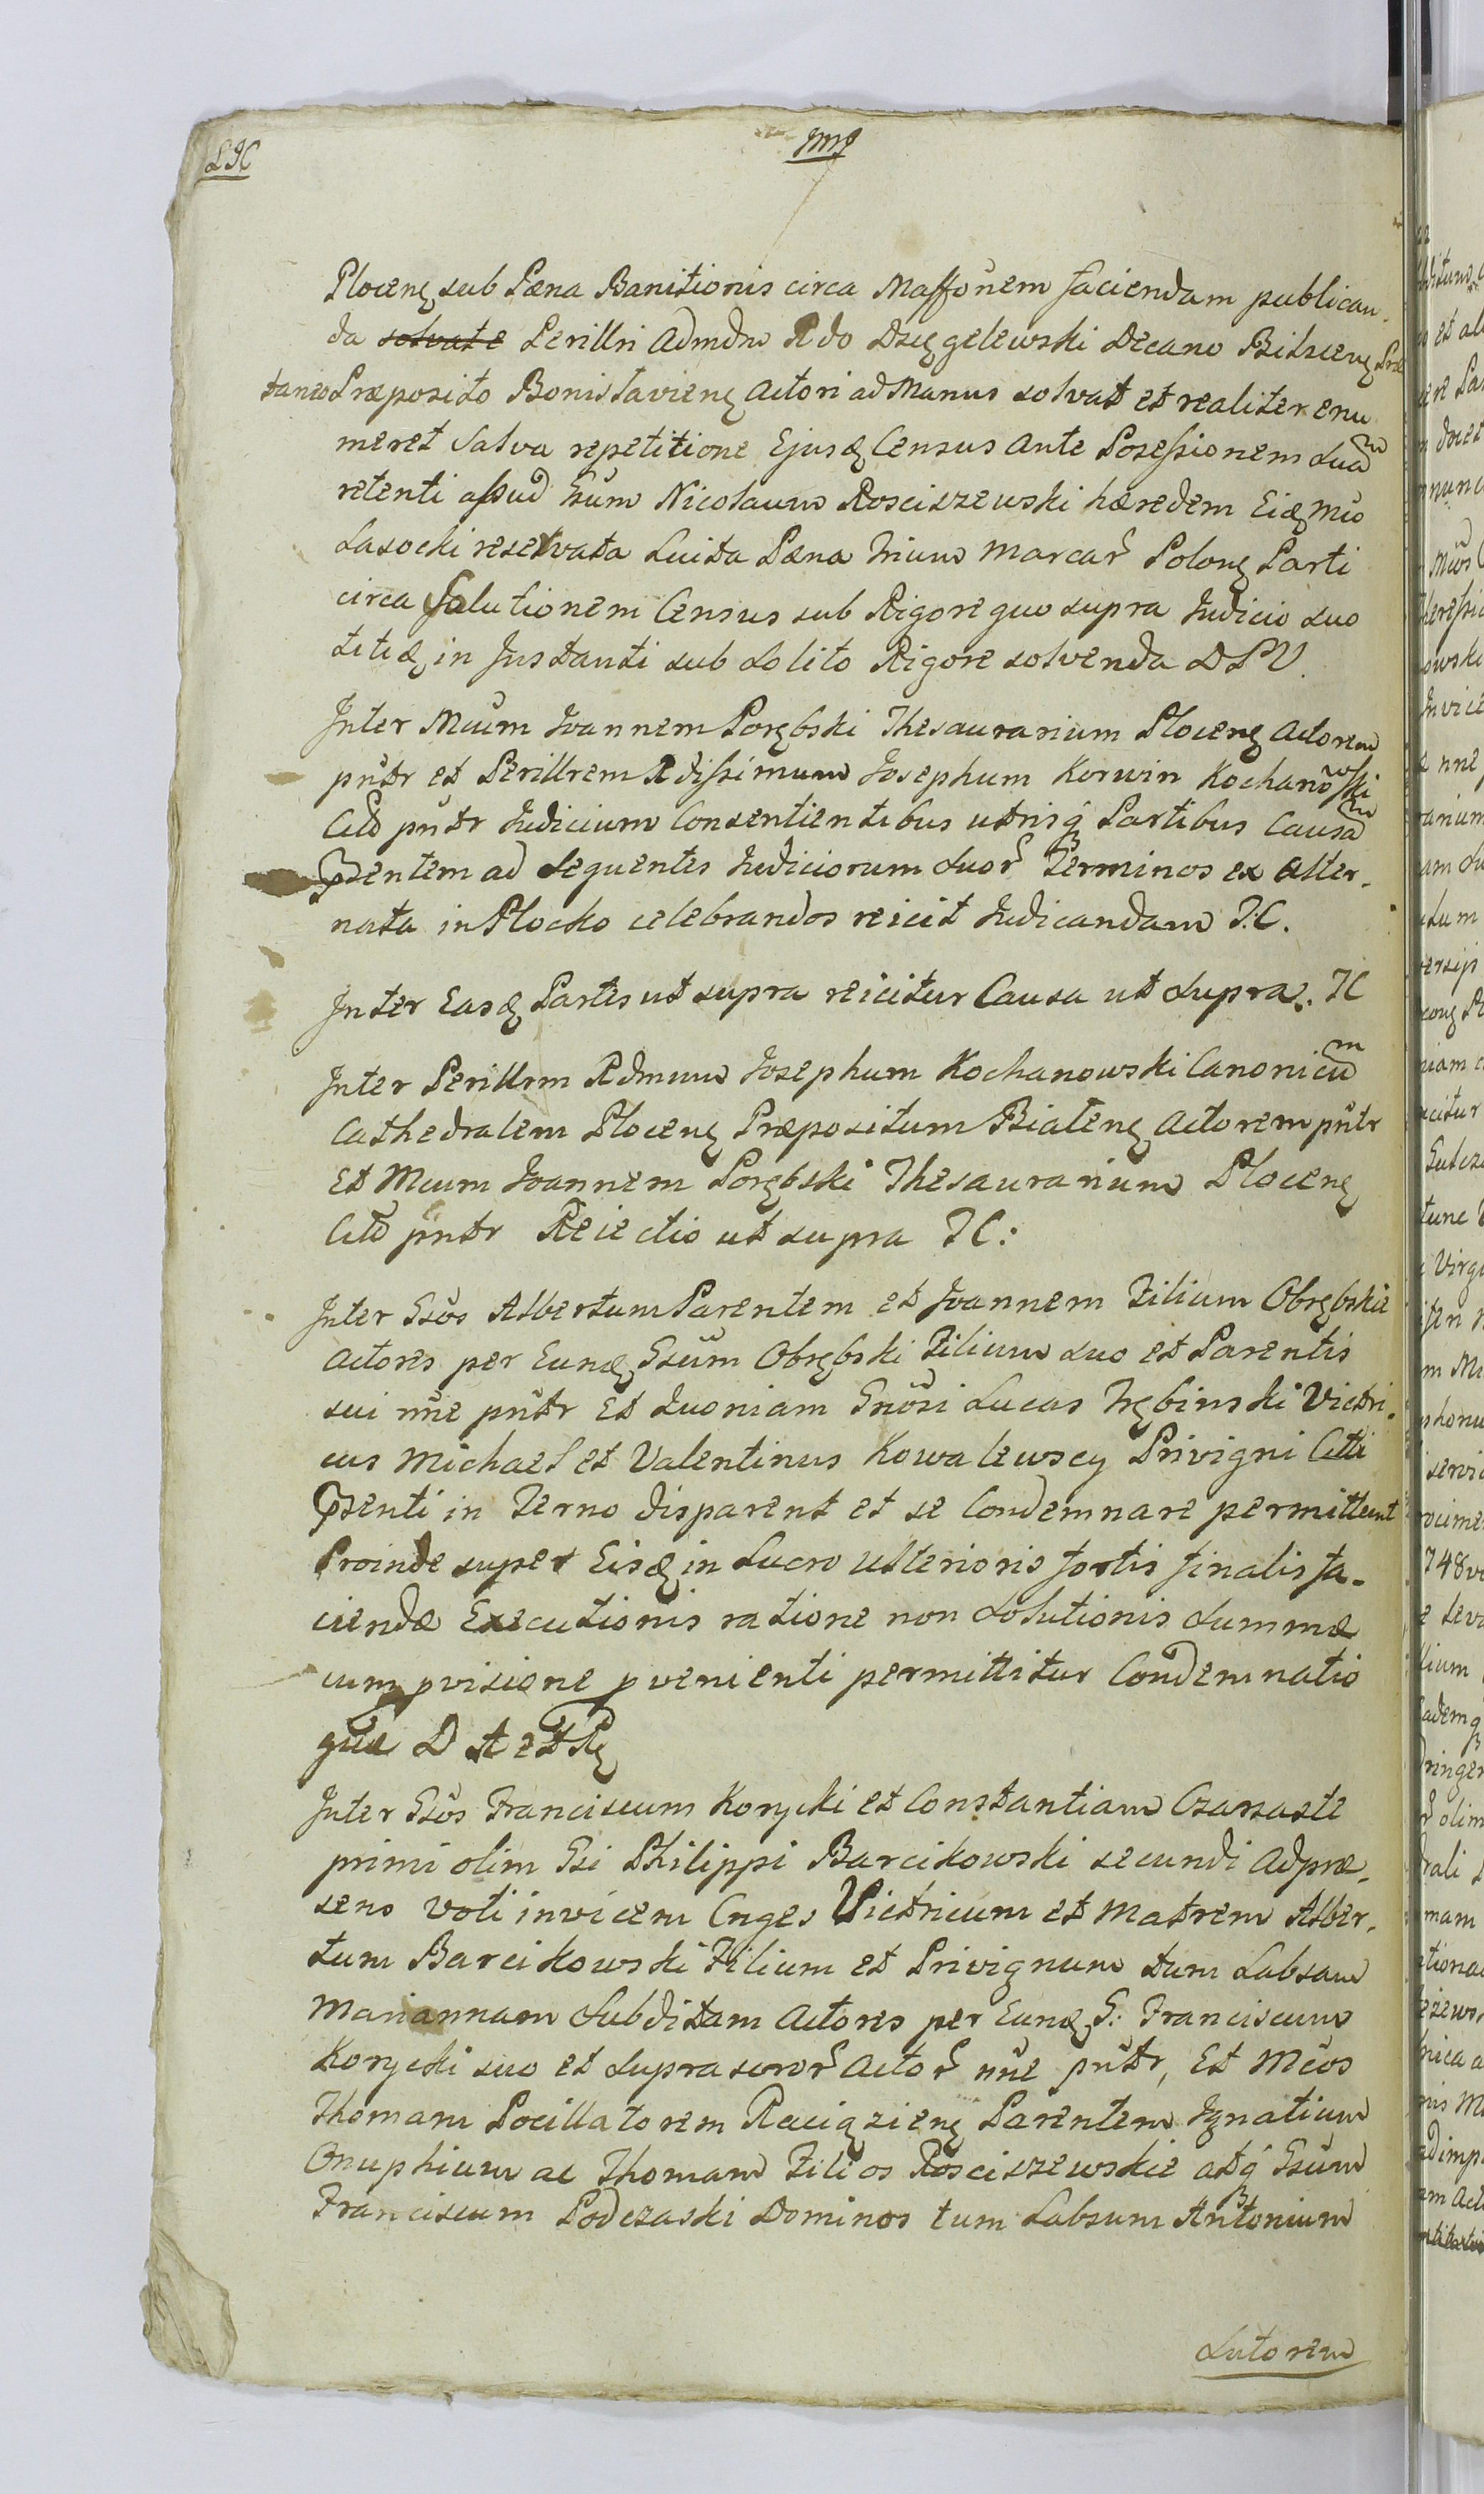 LJC
Plocenę sub Pæna Banitionis circa Massonem faciendam publican-
da solvate Perillri Admdm Rdo Dzięgelewski Decano Bielscenę Præ
taneo Præposito Bonislavienę Actori ad Manus solvat et realiter enu
meret Salva repetitione Ejusdę Census Ante Posessionem Suam
retenti apud Gsum Nicolaum Rosciszewski hæredem Eidę Mio
Lasocki reservata Luita Pæna Trium Marcar Polonę Parti
circa Solutionem Census sub Rigore quo supra Judicio suo
titidę in Instanti sub Solito Rigore solvenda DPV.
Inter Mcum Joannem Porębski Thesaurarium Plocenę Actorem
pntr et Perillrem Rdissimum Josephum Korwin Kochanowski
Citd pntr Judicium Consentientibus utrisq Partibus Causam
psentem ad Sequentes Judiciorum Suor Terminos ex Alter-
nata in Plocko celebrandos reicit Judicandam J.C.
Inter Easdę Partes ut supra reicitur Causa ut Supra. JC
Inter Perillrm Rdmum Josephum Kochanowski Canonicum
Cathedralem Plocenę Præpositum Bialenę Actorem pntr
Et Mcum Joannem Porębski Thesaurarium Plocenę
Citd pntr Reiectio ut supra JC:
Inter Gsos Albertum Parentem et Joannem Filium Obrębskie
Actores per Eundę Gsum Obrębski Filium suo et Parentis
sui nne pntr Et Quoniam Gnosi Lucas Trębinski Victri-
cus Michael et Valentinus Kowalewscy Privigni Citti
psenti in Terno disparent et se Condemnare permittunt
Proinde super Eisdę in Lucro Ulterioris fortis finalis fa-
ciendæ Executionis ratione non Solutionis Summæ
cum pvisione pvenienti permittitur Condemnatio
que D A et Rę
Inter Gsos Franciscum Korycki et Constantiam Czarzaste
primi olim Gsi Philippi Barcikowski secundi Adpræ-
sens voti invicem Cnges Victricum et Matrem Alber-
tum Barcikowski Filium et Privignum tum Labsam
Mariannam Subditam Actores per Eundę G: Franciscum
Korycki suo et Suprascror Actor nne pntr, Et Mcos
Thomam Pocillatorem Raciązienę Parentem Ignatium
Onuphium ac Thomam Filios Rosciszewskie atq Gsum
Franciscum Podczaski Dominos tum Labsum Antonium
Sutorem